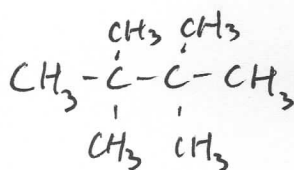 CH3 CH3
CH3-C-C-CH3
CH3 CH3